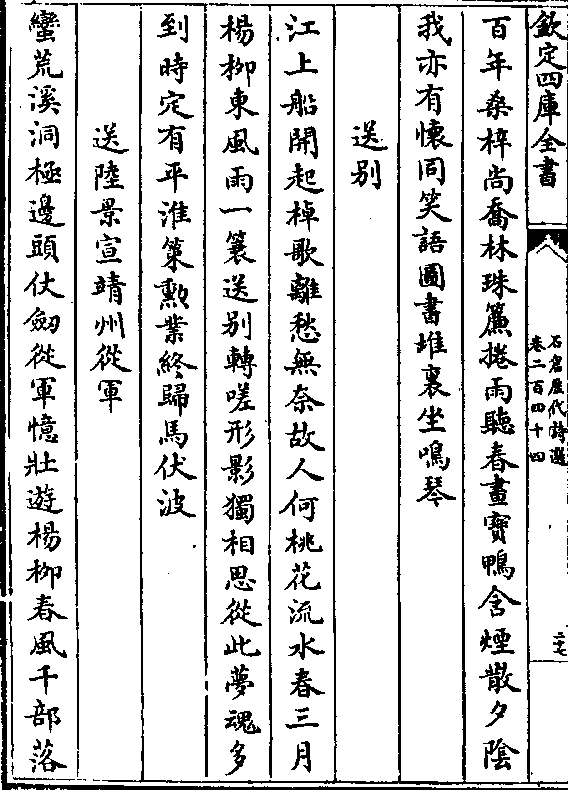 欽定四庫全書
石倉歷代詩選
卷二百四十四
二七
百年桑梓尚喬林珠簾捲雨聽春晝寶鴨含煙散夕陰
我亦有懷同笑語圖書堆裏坐鳴琴
送别
江上船開起棹歌離愁無奈故人何桃花流水春三月
楊柳東風雨一簑送别轉嗟形影獨相思從此夢魂多
到時定有平淮策勲業終歸馬伏波
送陸景宣靖州從軍
蠻荒溪洞極邊頭仗劔從軍憶壯遊楊柳春風千部落